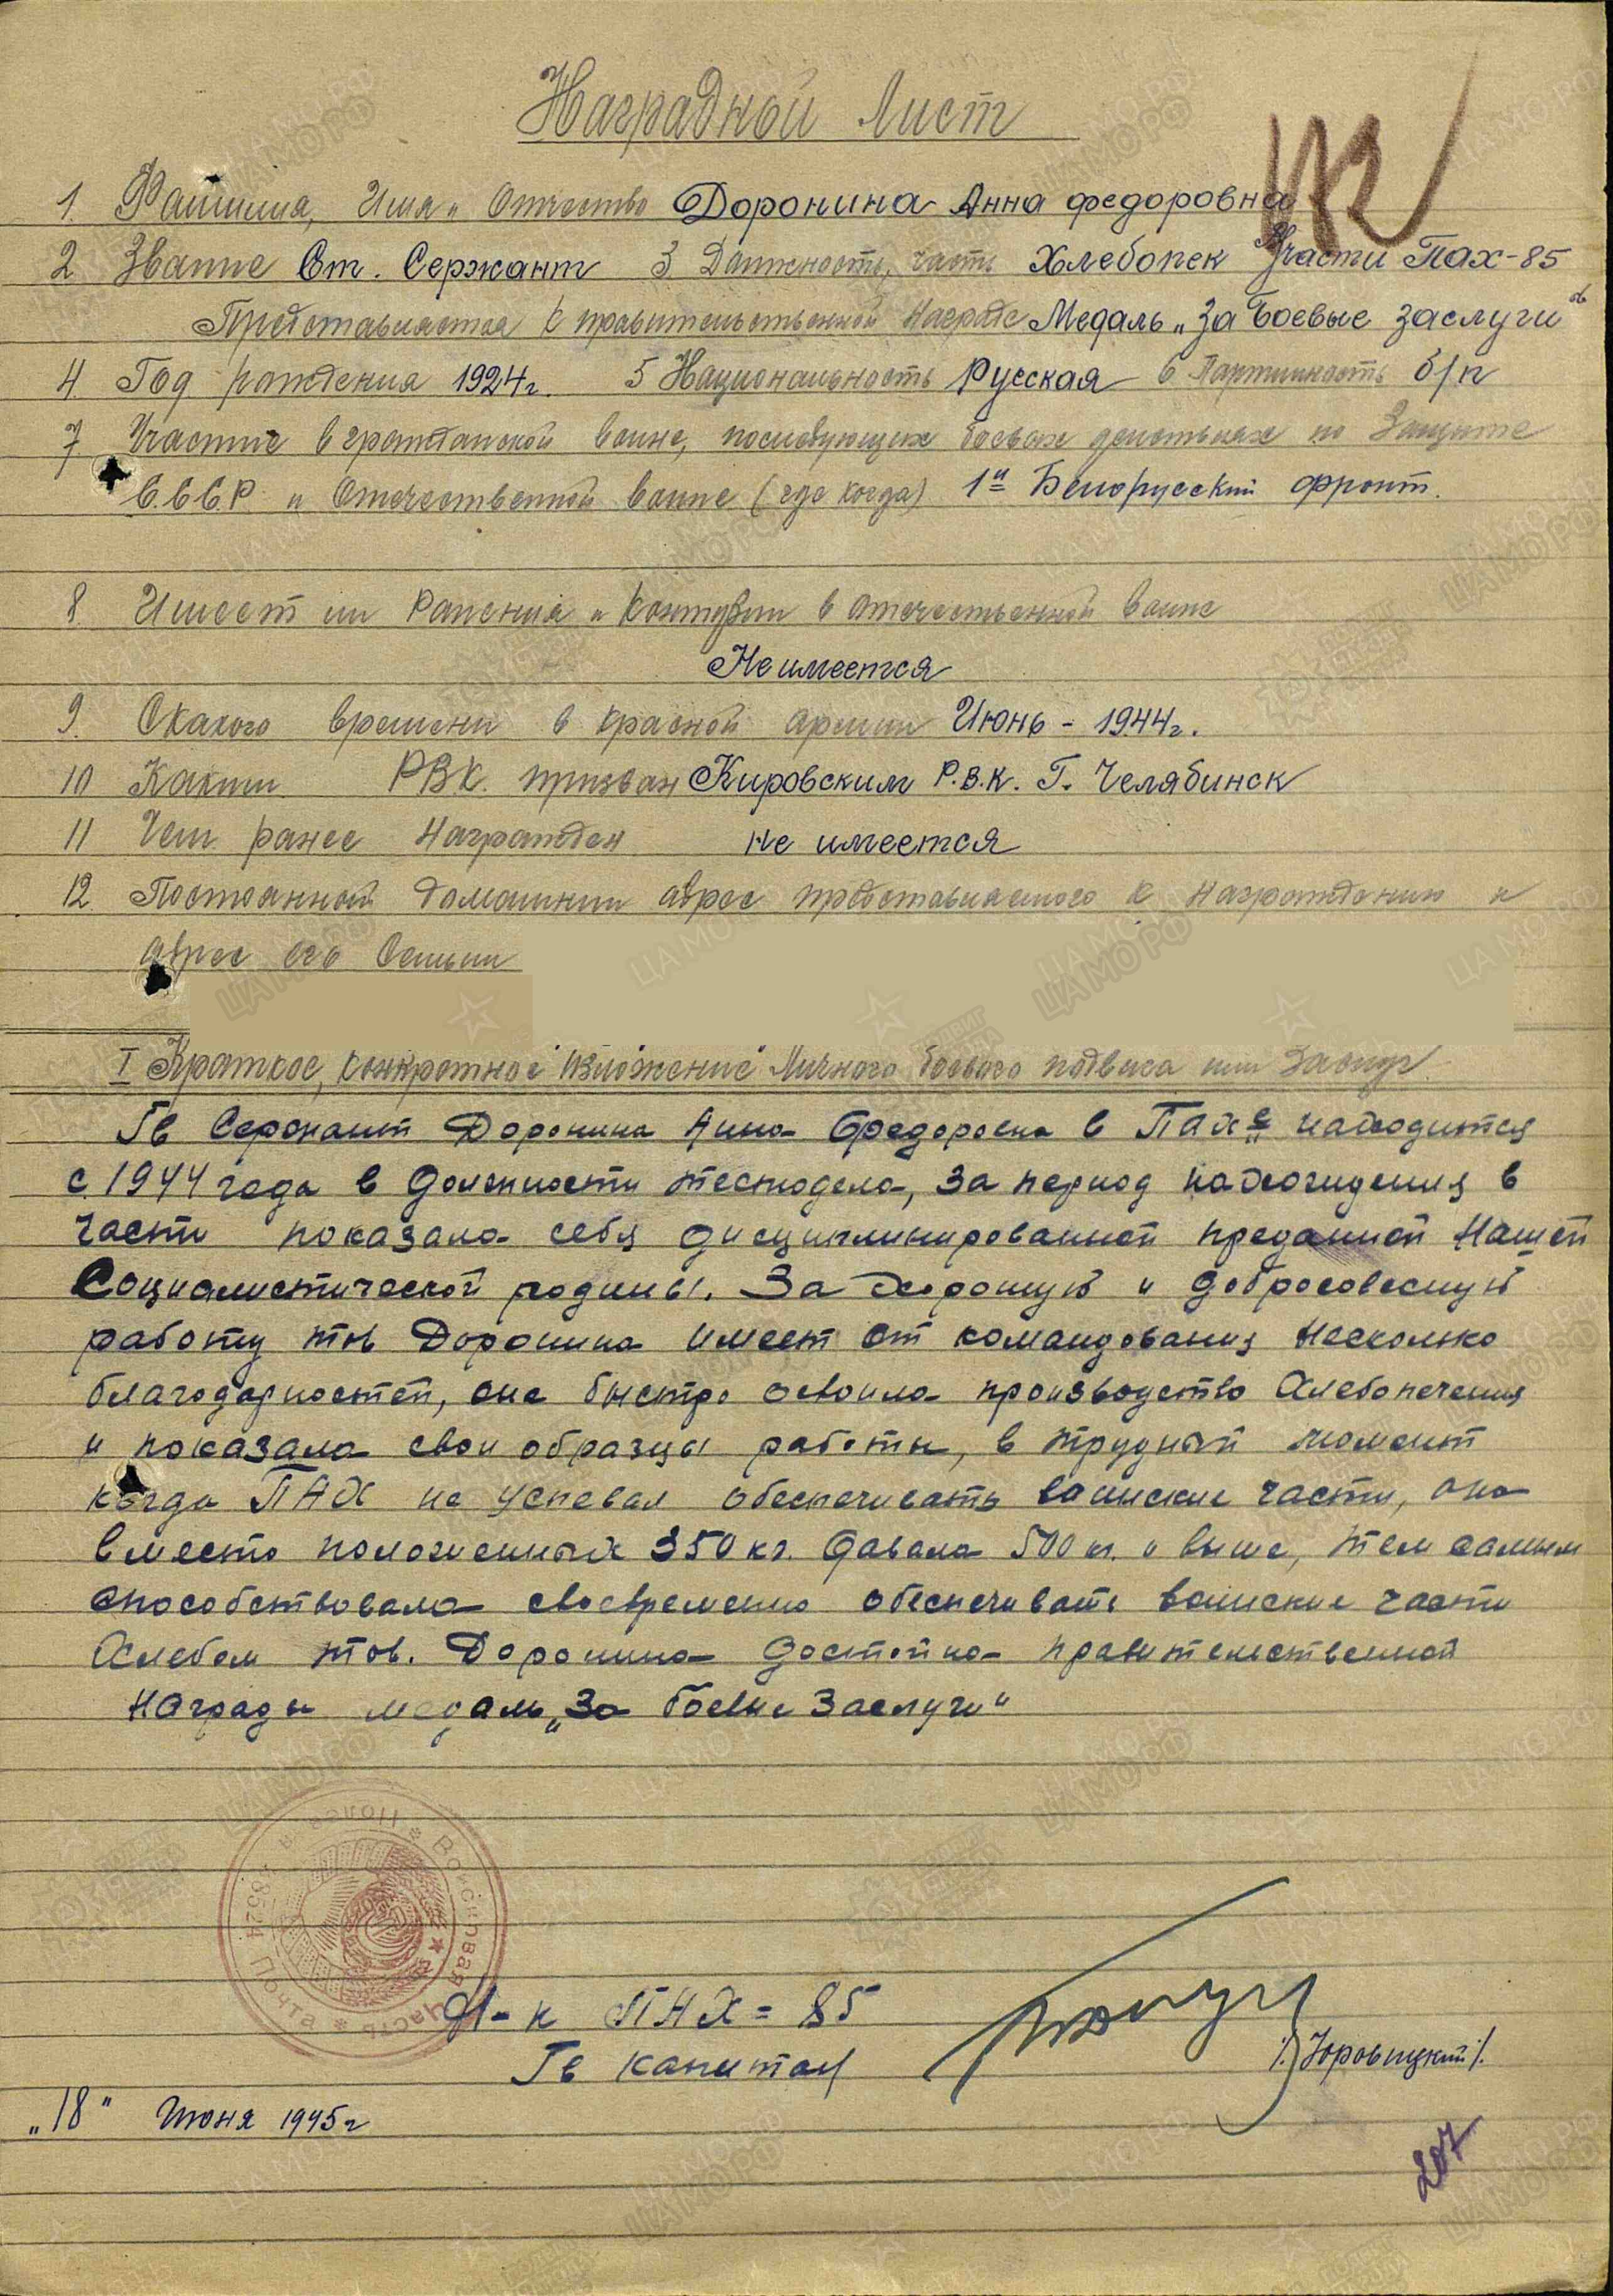 Наградной Лист
1. Фамилия, Имя и Отчество Доронина Анна Федоровна
2 Звание Ст. Сержант 3 Должность, часть Хлебопек Части Пах-85
Представляется к правительственной Награде Медаль „За Боевые заслуги"
4. Год рождения 1924г. 5 Национальность Русская 6 Партийность б/п
7 Участие в гражданской войне, последующих боевых действиях по Защите
С.С.С.Р. и Отечественной войне (где когда) 1й Белорусский фронт.
8. Имеет ли Ранения и Контузии в отечественной войне
Не имеется
9. С какого времени в красной армии Июнь - 1944г.
10 Каким РВК. призван Кировским Р.В.К. Г. Челябинск
11 Чем ранее Награжден не имеется
12. Постоянный домашний адрес представляемого к награждению и
адрес его Семьи
I Краткое, конкретное изложение Личного боевого подвига или Заслуг.
Гв Сержант Доронина Анна Федоровна в ПАХе находится
с 1944 года в должности тестодела, за период нахождения в
части показала себя дисциплинированной преданной Нашей
Социалистической родины. За хорошую и добросовесную
работу тов Доронина имеет от командования несколько
благодарностей, она быстро освоила производство Хлебопечения
и показала свои образцы работы, в трудный момент
когда ПАХ не успевал обеспечивать воинские части, она
вместо положенных 350 кг. давала 500 кг. и выше, тем самым
способствовала своевременно обеспечивать воинские части
Хлебом тов. Доронина достойна правительственной
Награды медаль „За боевые Заслуги"
Войсковая часть * Полевая Почта *
Н-к ПАХ = 85
Гв капитан /Юровицкий/.
„18" Июня 1945г
207